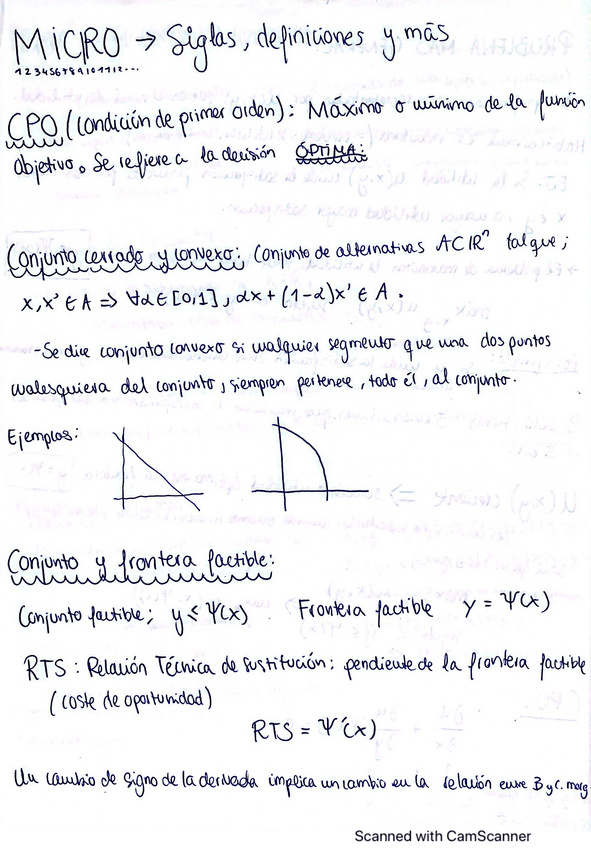 MICRO → Siglas, definiciones y más
1 2 3 4 5 6 7 8 9 10 11 12 ...
CPO (condición de primer orden): Máximo o mínimo de la función
objetivo. Se refiere a la decisión ÓPTIMA:
Conjunto cerrado y convexo: Conjunto de alternativas A⊂ℝⁿ tal que;
x, x' ∈ A ⇒ ∀α ∈ [0,1], αx + (1-α)x' ∈ A.
-Se dice conjunto convexo si cualquier segmento que una dos puntos
cualesquiera del conjunto, siempren pertenece, todo él, al conjunto.
Ejemplos:
Conjunto y frontera factible:
Conjunto factible; y ≤ Ψ(x) Frontera factible y = Ψ(x)
RTS: Relación Técnica de Sustitución; pendiente de la frontera factible
(coste de oportunidad)
RTS = Ψ'(x)
Un cambio de signo de la derivada implica un cambio en la relación entre B y C. marg
Scanned with CamScanner